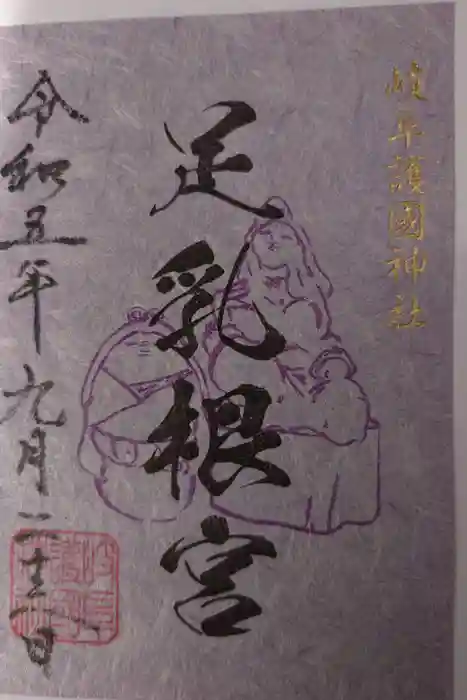 岐阜護國神社
足乳根宮
令和五年九月二十二日